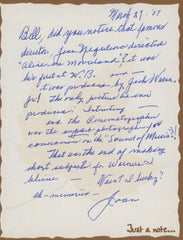 March 27, '67
Bill, did you notice that famous
director, Jean Negulesco directed
"Alice in Movieland"? it was
his first at W.B. and
it was produced by Jack Warner,
Jr! The only picture he ever
produced! Interesting —
and the Cinematographer
was the
cameraman on the "Sound of Music"!
That was the end of making
short subjects for Warner's I
believe — Wasn't I lucky?
ah-memories —
Joan
Just a note...